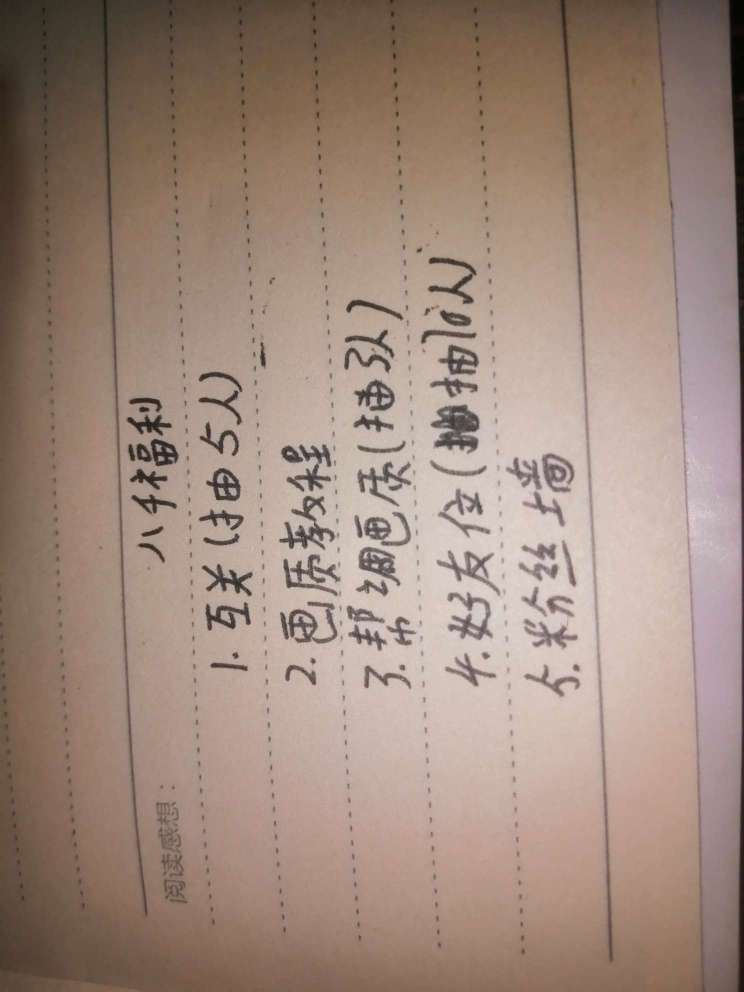 八千福利
1. 互关(抽5人)
2. 画质教程
3. 帮调画质(抽3人)
4. 好友位(抽10人)
5. 粉丝墙
阅读感想: